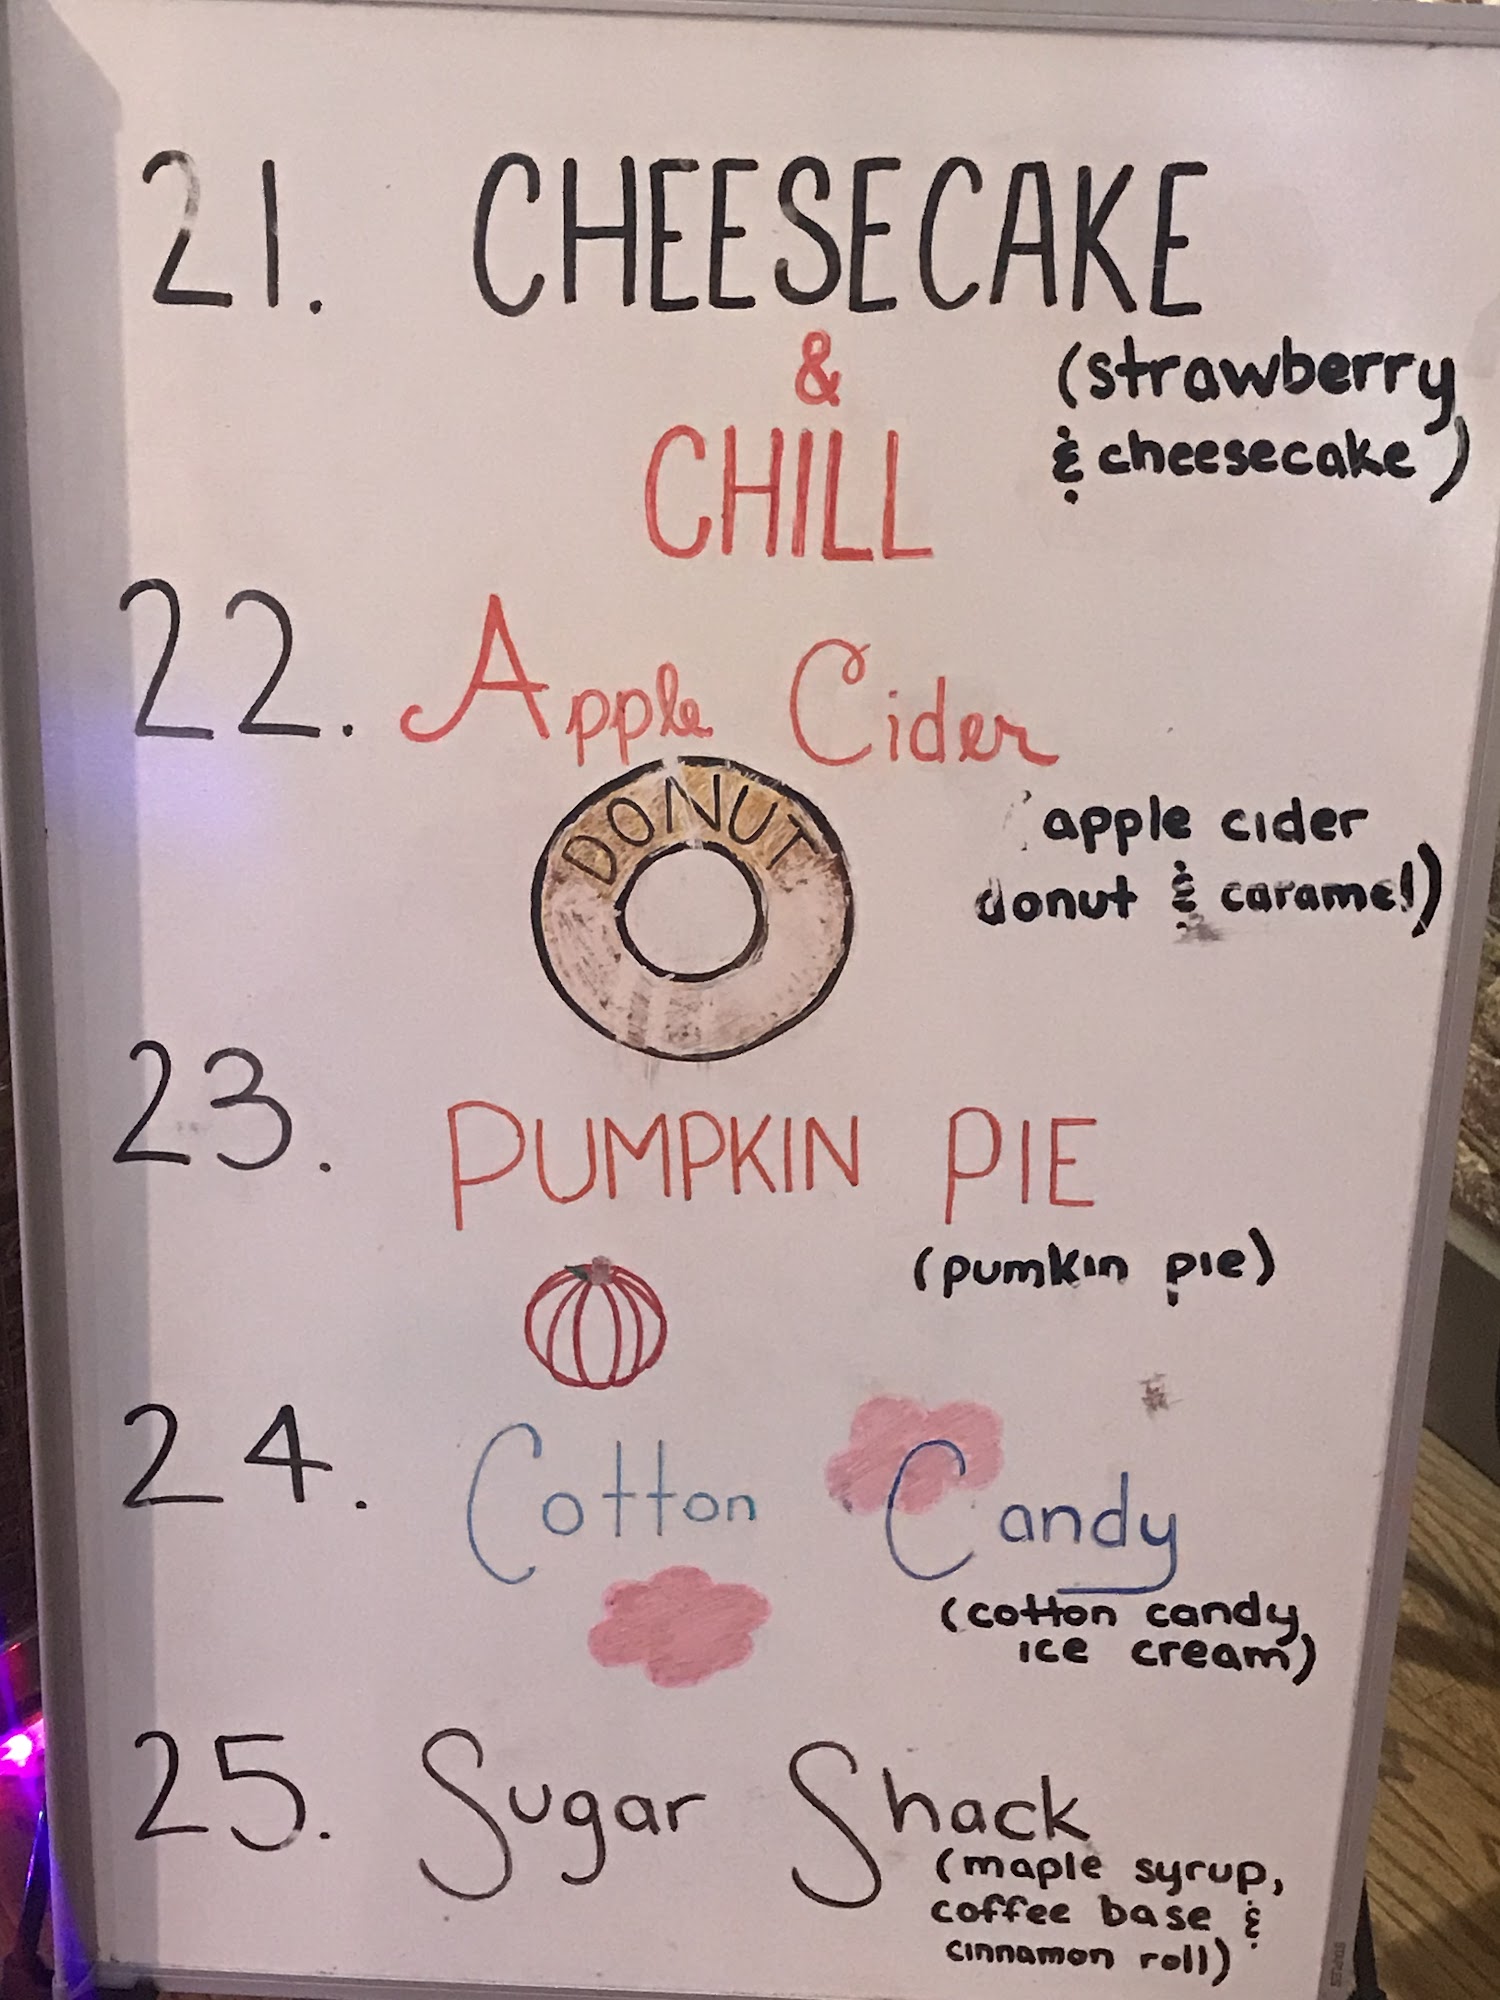 21. CHEESECAKE
&
CHILL
(strawberry
& cheesecake)
22. Apple Cider
DONUT
apple cider
donut & caramel)
23. PUMPKIN PIE
(pumkin pie)
24. Cotton Candy
(cotton candy
ice cream)
25. Sugar Shack
(maple syrup,
coffee base &
cinnamon roll)
STAPLES